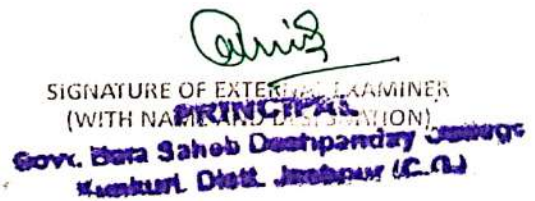 SIGNATURE OF EXTERNAL EXAMINER
(WITH NAME AND DESIGNATION)
PRINCIPAL
Govt. Bala Saheb Deshpanday College
Kunkuri, Distt. Jashpur (C.G.)